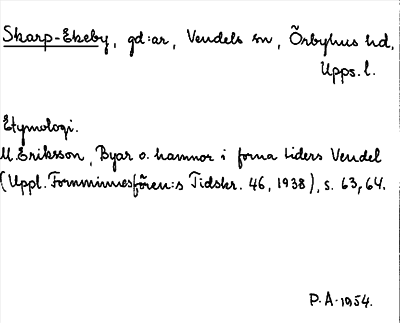 Skarp-Ekeby, gd:ar, Vendels sn, Örbyhus hd,
Upps. l.
Etymologi.
M. Eriksson, Byar o. hamnor i forna tiders Vendel
(Uppl. Fornminnesfören:s Tidskr. 46, 1938), s. 63, 64.
P. A. 1954.